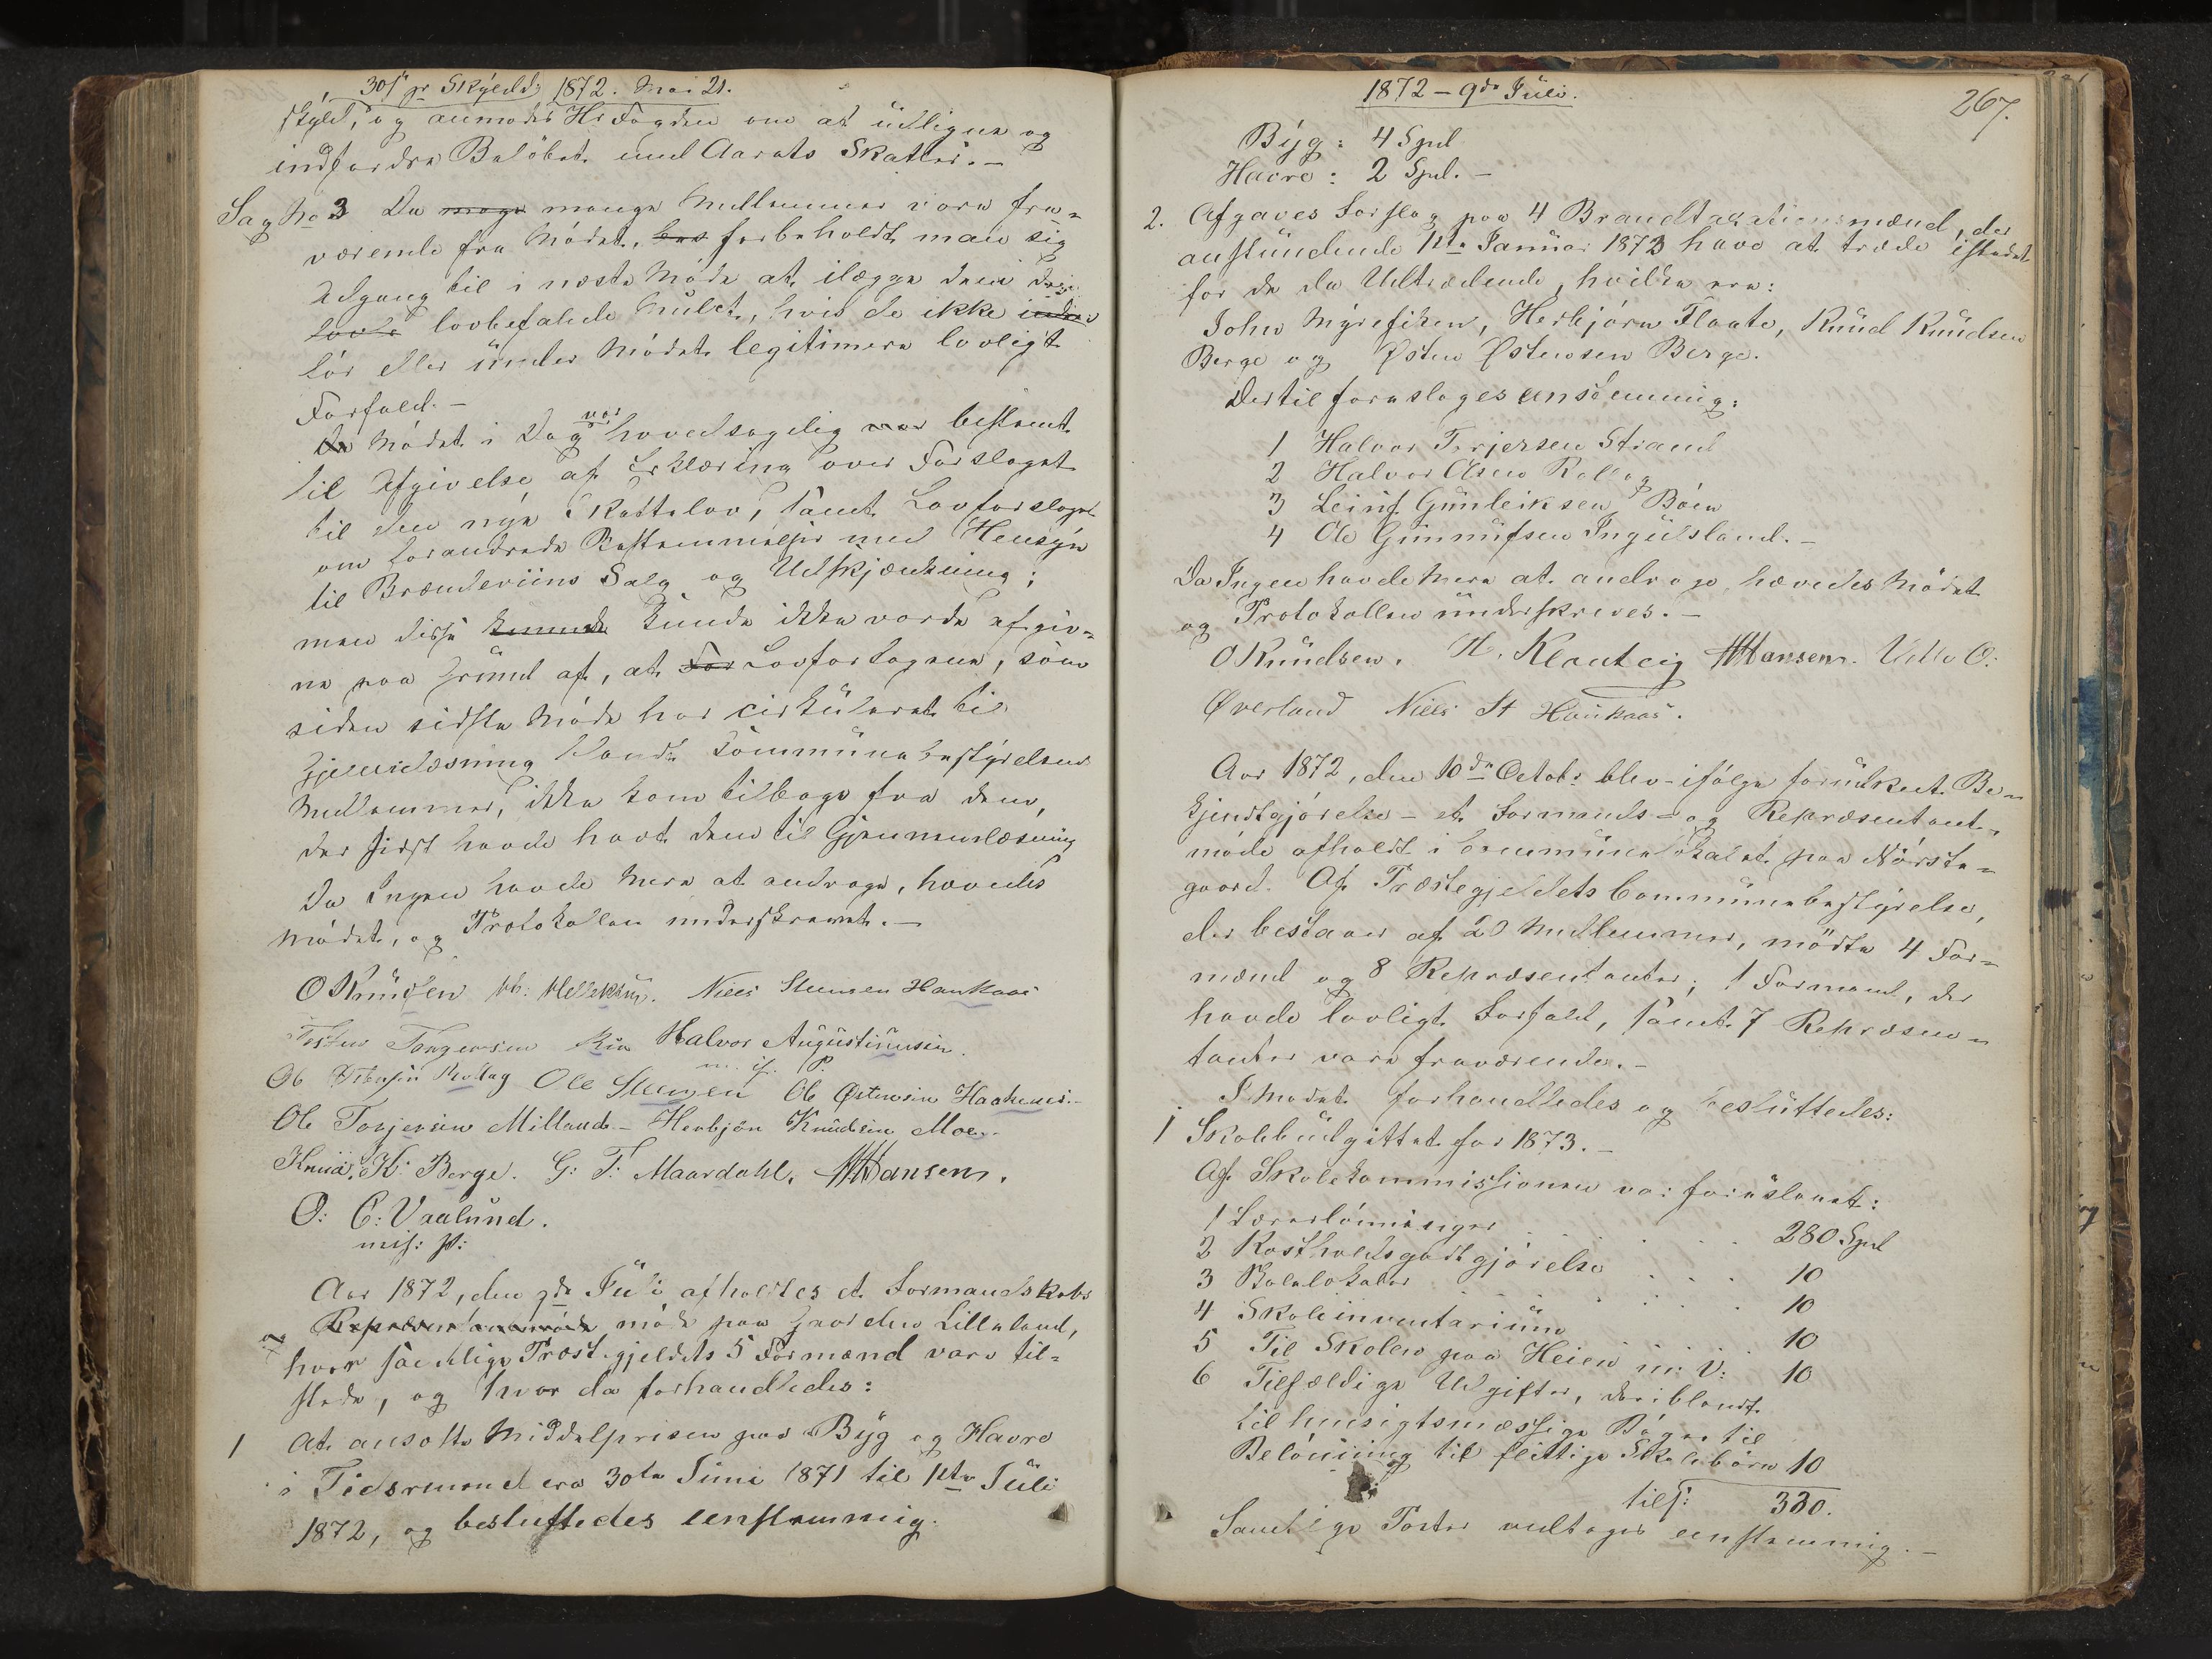 30 ſ pr Skyldd. 1872. Mai 21.
skyld, og anmodes Hr Fogden om at udligne og
indfordre Beløbet med Aarets Skatter. -
Sag No 3 Da mange Medlemmer vare fra-
værende fra Mødet, forbeholdt man sig
Adgang til i næste Møde at ilægge dem
lovbefalede Mulct, hvis de ikke inden
før eller under Mødet legitimere lovligt
Forfald. -
Da Mødet i Dag var hovedsagelig bestemt
til Afgivelse af Erklæring over Forslaget
til den nye Skattelov, samt Lovforslaget
om forandrede Bestemmelser med Hensyn
til Brændeviins Salg og Udskjænkning;
men disse kunde ikke vorde afgiv-
ne paa Grund af, at Lovforslagene, som
siden sidste Møde har cirkuleret til
Gjennemlæsning blandt Kommunebestyrelsens
Medlemmer, ikke kom tilbage fra dem,
der sidst havde havt dem til Gjennemlæsning
Da Ingen havde mere at andrage, hævedes
Mødet, og Protokollen underskrevet. -
O Knudsen Niels Steensen Haukaas
Halvor Augustinusen.
m. if. P.
Ole Steensen Ole Østensen
Ole Torjersen Milland - Herbjør Knudsen Moe.
Knud. K: Berge. G: T: Maardahl. HHansen.
O: C: Vaalund.
mif: P:
Aar 1872, den 9de Juli afholdtes et Formandskabs
møde paa Gaarden Lilleland,
hvor samtlige Præstegjeldets 5 Formænd vare til-
stede, og hvor da forhandledes:
1 At ansatte Middelprisen paa Byg og Havre
i Tidsrummet fra 30te Juni 1871 til 1ste Juli
1872, og besluttedes eenstemmig.
1872 - 9de Juli.
267.
Byg: 4 Spd
Havre: 2 Spd. -
2. Afgaves Forslag paa 4 Brandtaxationsmænd, der
anstundende 1ste Januar 1873 have at træde istedet
for de da Udtrædende, hvilke ere:
John Myrefiken, Herbjørn Flaate, Knud Knudsen
Berge og Østen Østensen Berge.
Dertil foresloges eenstemmig:
1 Halvor Terjersen Strand
2 Halvor Olsen Rollag
3 Leinf Gunleiksen Bøen
4 Ole Gunnufsen Ingulsland. -
Da Ingen havde mere at andrage, hævedes Mødet
og Protokollen underskreves. -
O Knudsen. H. Kleuteig HHansen. O:
Øverland Niels St Haukaas.
Aar 1872, den 10de Octobr blev - ifølge forudskeet Be-
kjendtgjørelse - et Formands- og Repræsentant-
møde afholdt i Communelokalet paa Nørste-
gaard. Af Præstegjeldets Communebestyrelse,
der bestaaer af 20 Medlemmer, mødte 4 For-
mænd og 8 Repræsentanter; 1 Formand, der
havde lovligt Forfald, samt 7 Repræsen-
tanter vare fraværende. -
I Mødet forhandledes og besluttedes:
1 Skolebudgettet for 1873. -
Af Skolekommissionen var foreslaaet:
1 Lærerlønninger . . . . 280 Spd
2 Kostholdsgodtgjørelse . . . 10
3 Skolelokaler . . . . 10
4 Skoleinventarium . . . 10
5 Til Skolen paa Heien m: V: 10
6 Tilfældige Udgifter, deriblandt
til hensigtsmæssige Bøger til
Belønning til flittige Skolebørn 10
tils: 330.
Samtlige Poster vedtages eenstemmig. -